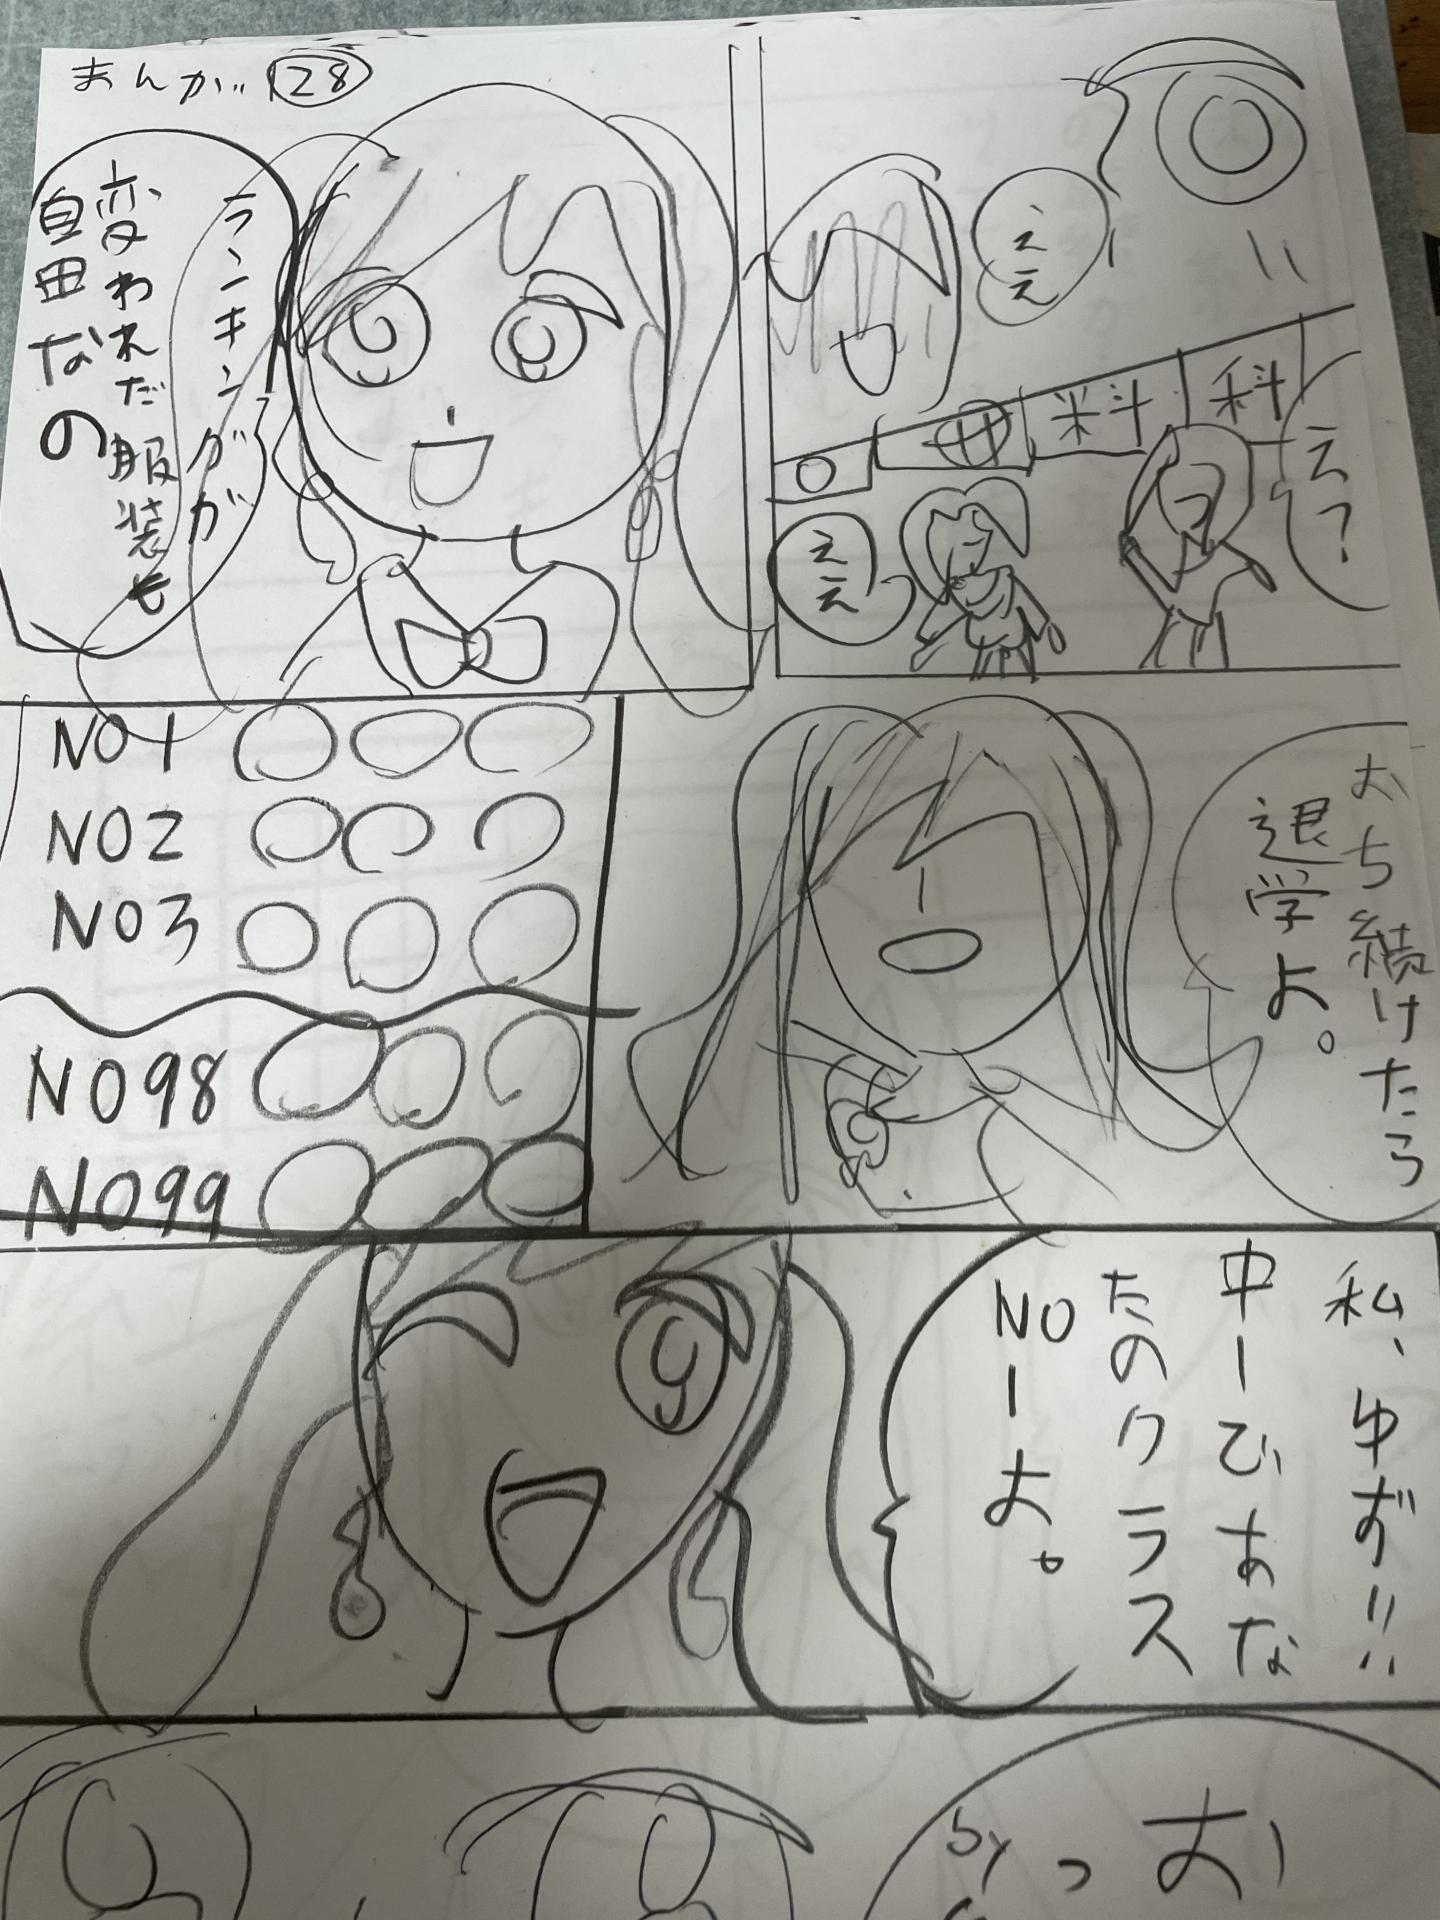 まんが 128
え?
ええ
ええ
料
科
ランキングが
変われだ服装も
自由なの
おち続けたら
退学よ。
NO1
NO2
NO3
NO98
NO99
私、ゆず!!
中ーひあな
たのクラス
NOーよ。